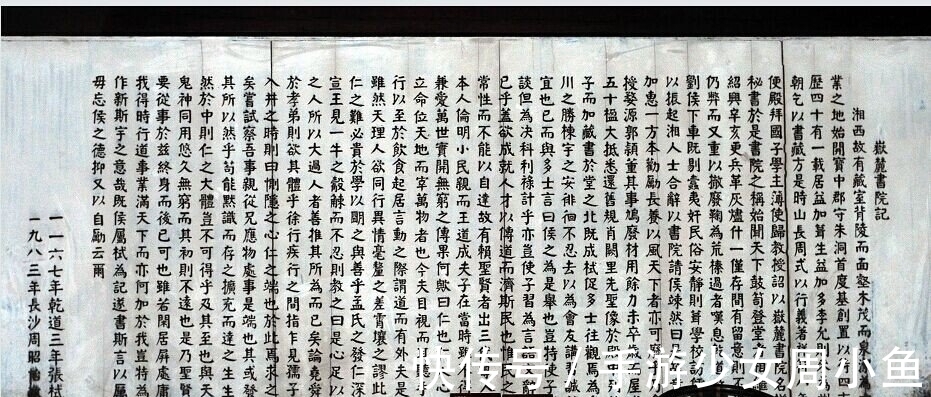 嶽麓書院記
湘西故有藏室背陵而面壑木茂而泉
業之地始開寶中郡守朱洞首度基創置以行四
歷四十有一載居益加葺生益加多李允則
朝乞以書藏方是時山長周式以行義著
使殿拜國子學主薄使歸教授詔以嶽麓書院名
秘書於是書院之稱始聞天下鼓笥登堂者相繼
紹興辛亥更兵革灰燼什一僅存間有留意則不
仍弊而又重以撤廢鞠為荒榛過者嘆息
劉侯下車既剔蠹夷奸民俗安靜則葺學校訪
以振起湘人士合辭以書院請侯竦然曰
加惠一方本勸勵長養以風天下者亦可廢
授婺源郭穎董其事鳩廢材用餘力未卒
五十楹大抵悉還舊規肖闕里先聖像於殿中列
子而加藏書於堂之北既成栻促多士往觀焉為
川之勝棟宇之安徘徊不忍去以為會友講
宜也已而與多士言曰侯之為是舉也豈
談但為決科利祿計乎亦豈使子習為言語文辭
已乎蓋欲成就人才以傳道而濟斯民也惟民之
常性而不能以自達故有賴聖賢者出三
本人倫明小民親而王道成夫子在當時雖不
兼愛萬世實開無窮之傳果何歟曰仁也仁
立命位天地而宰萬物者也今夫目視而
行以至於飲食起居言動之際謂道而有外夫是
雖然天理人欲同行異情毫釐之差霄壤之謬此
仁之難必貴於學以明之與善乎孟氏之發仁深
宣王見一牛之觳觫而不忍則教之曰是心
之人所以大過人者善推其所為而已矣論堯舜
於孝弟則欲其體乎徐行疾行之間指乍見孺子
入井之時則曰惻隱之心仁之端也於此焉求之
矣嘗試察吾事親從兄應物處事是端也其
其所以然乎苟能默識而存之擴充而達之生生
然於中則仁之大體豈不可得乎及其至也與天
鬼神同用悠久無窮而其初則不遠也是乃聖賢
要從事於茲終身而後已可也雖若閑居屏處庸
我得時行道事業滿天下而亦何加於我豈特為
作新斯宇之意哉既侯屬栻為記遂書斯言以厲
毋忘侯之德抑又以自勵云爾
一一六七年乾道三年張栻
一九八三年長沙周昭怡
快传号 / 手游少女周小鱼